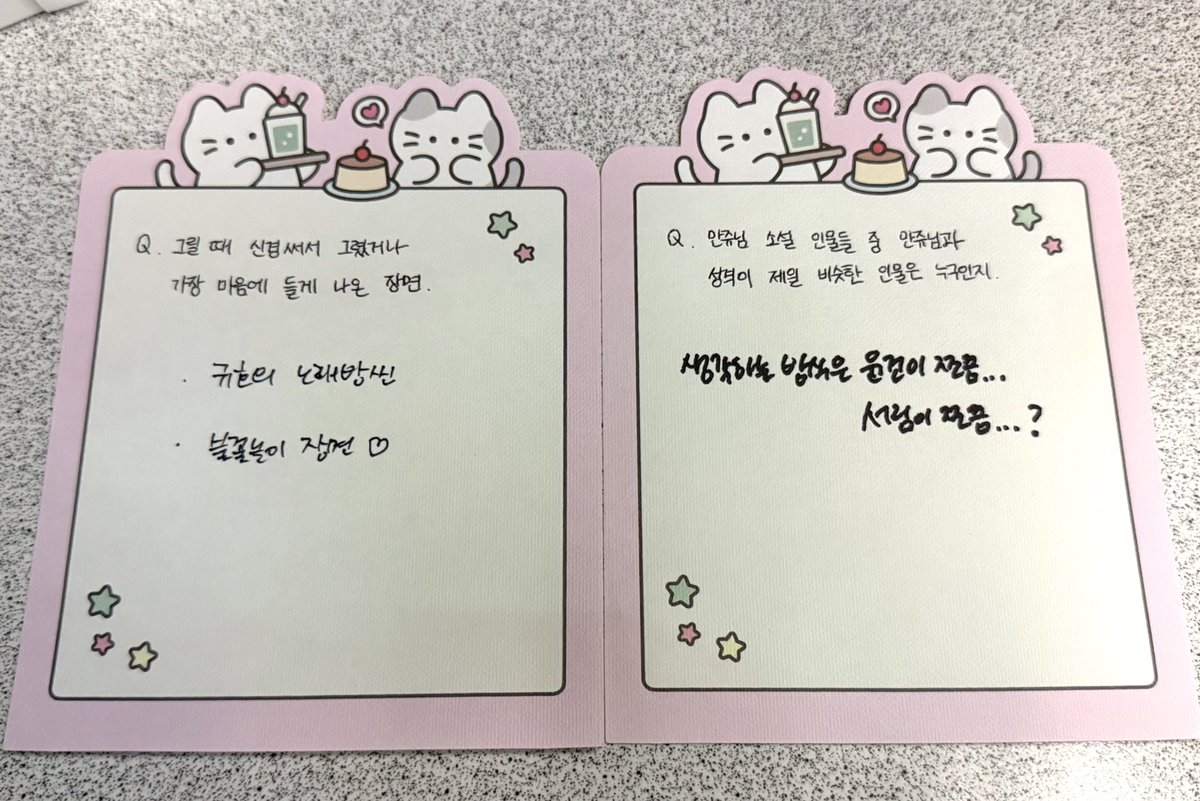 Q. 그릴 때 신경써서 그렸거나
가장 마음에 들게 나온 장면.
· 규호의 노래방씬
· 불꽃놀이 장면 ♡
Q. 안쥬님 소설 인물들 중 안쥬님과
성격이 제일 비슷한 인물은 누구인지.
생각하는 방식은 윤건이 쪼끔...
서림이 쪼끔...?